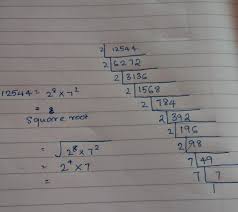 2 | 12544
2 | 6272
2 | 3136
2 | 1568
2 | 784
2 | 392
2 | 196
2 | 98
7 | 49
7 | 7
1
12544 = 2⁸ × 7²
= 8
Square root
= √2⁸ × 7²
= 2⁴ × 7
=